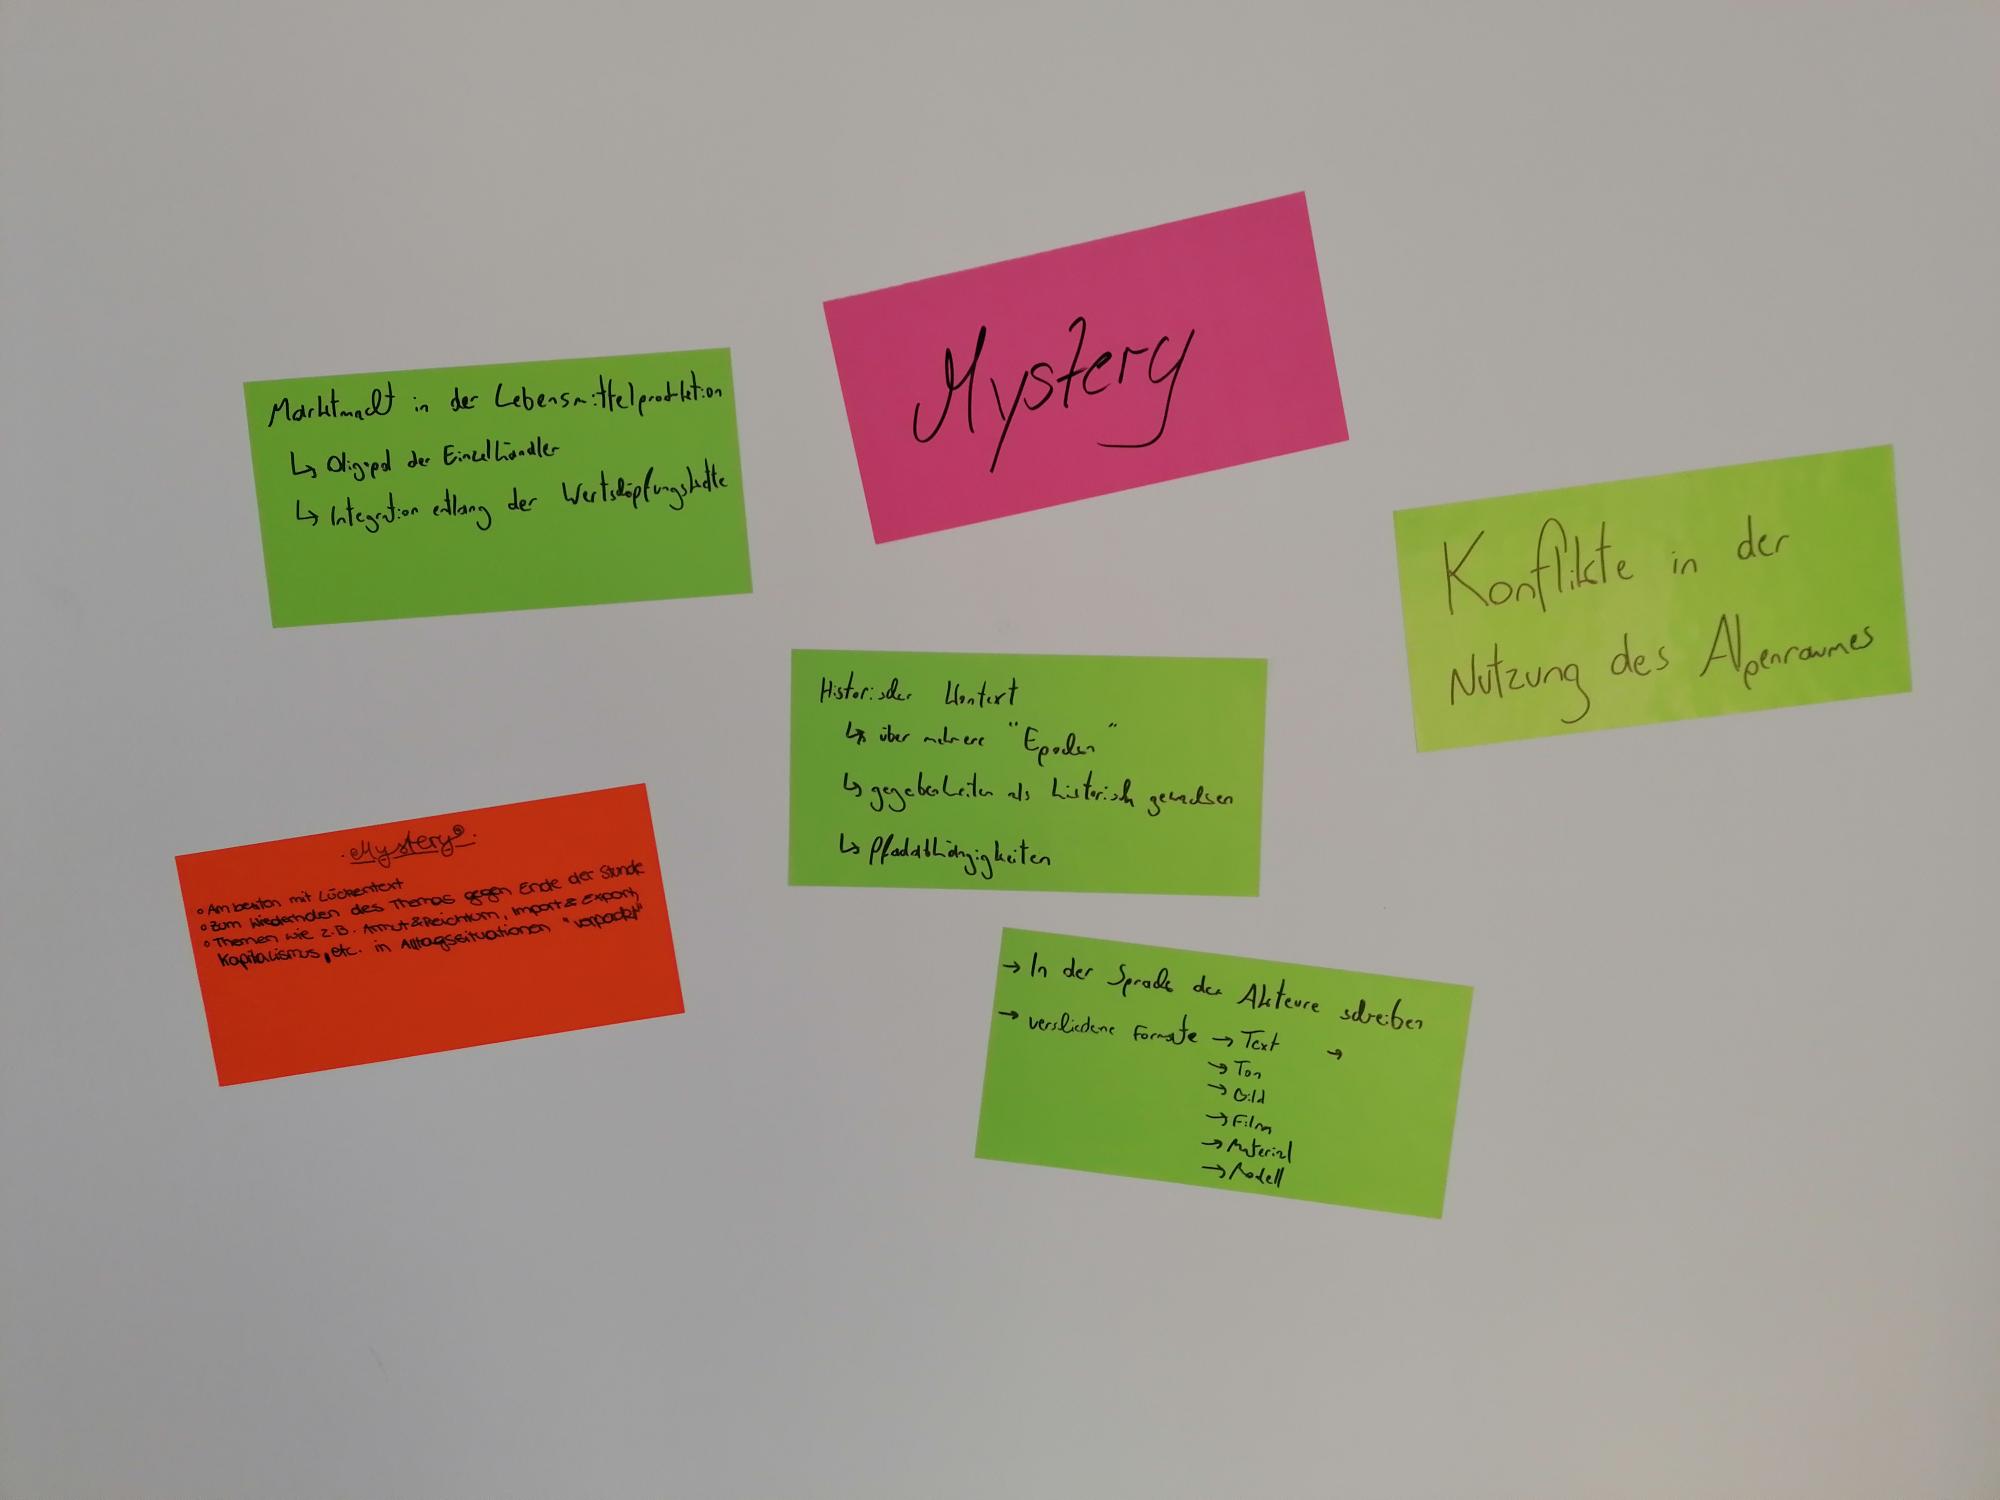 Mystery
Marktmacht in der Lebensmittelproduktion
↳ Oligopol der Einzelhändler
↳ Integration entlang der Wertschöpfungskette
Konflikte in der
Nutzung des Alpenraumes
Historischer Kontext
↳ über mehrere "Epochen"
↳ gegebenheiten als historisch gewachsen
↳ Pfadabhängigkeiten
Mystery
Am besten mit Lückentext
Zum des Themas gegen Ende der Stunde
Themen wie z.B. Armut & Reichtum, Import & Export,
Kapitalismus, etc. in Alltagssituationen "verpackt"
→ In der Sprache der Akteure schreiben
→ verschiedene Formate → Text →
→ Ton
→ Bild
→ Film
→ Material
→ Modell